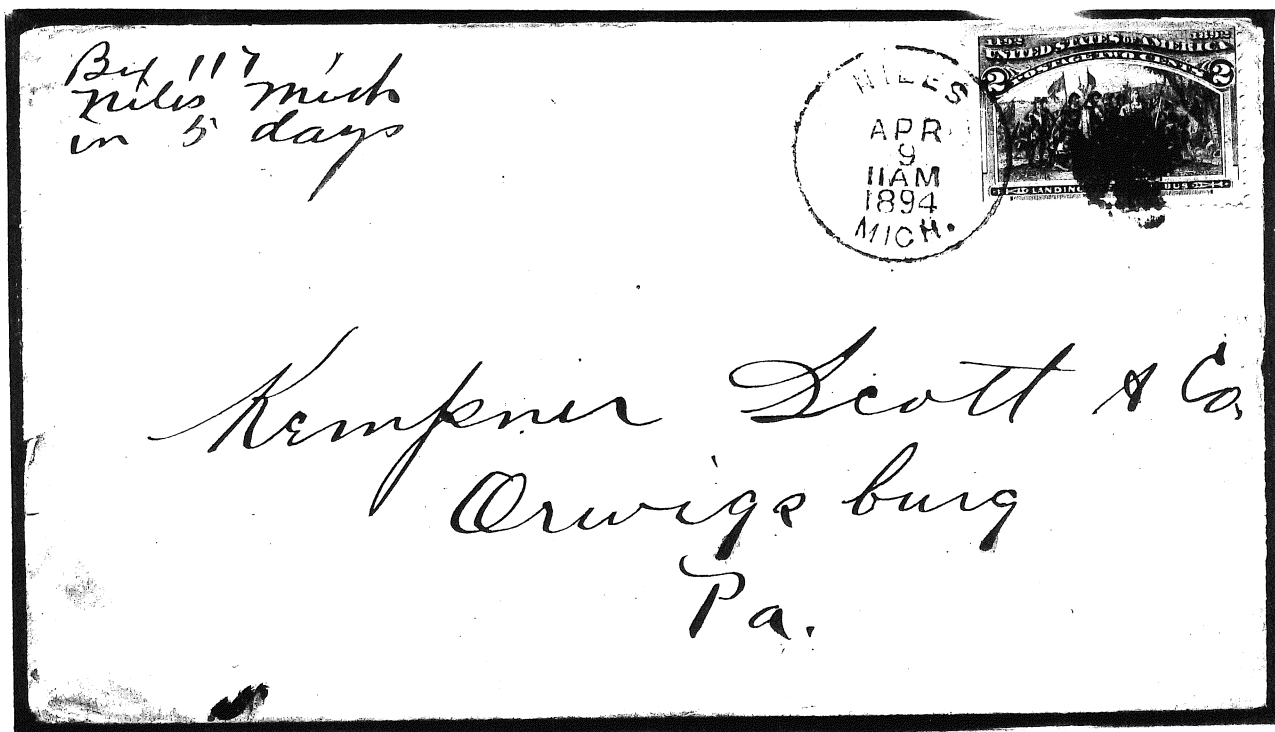 Bx 117
Niles Mich
in 5 days
NILES
APR
9
11AM
1894
MICH.
1492 1892
UNITED STATES OF AMERICA
2 POSTAGE TWO CENTS 2
LANDING BUS
Kempner Scott & Co.
Orwigsburg
Pa.